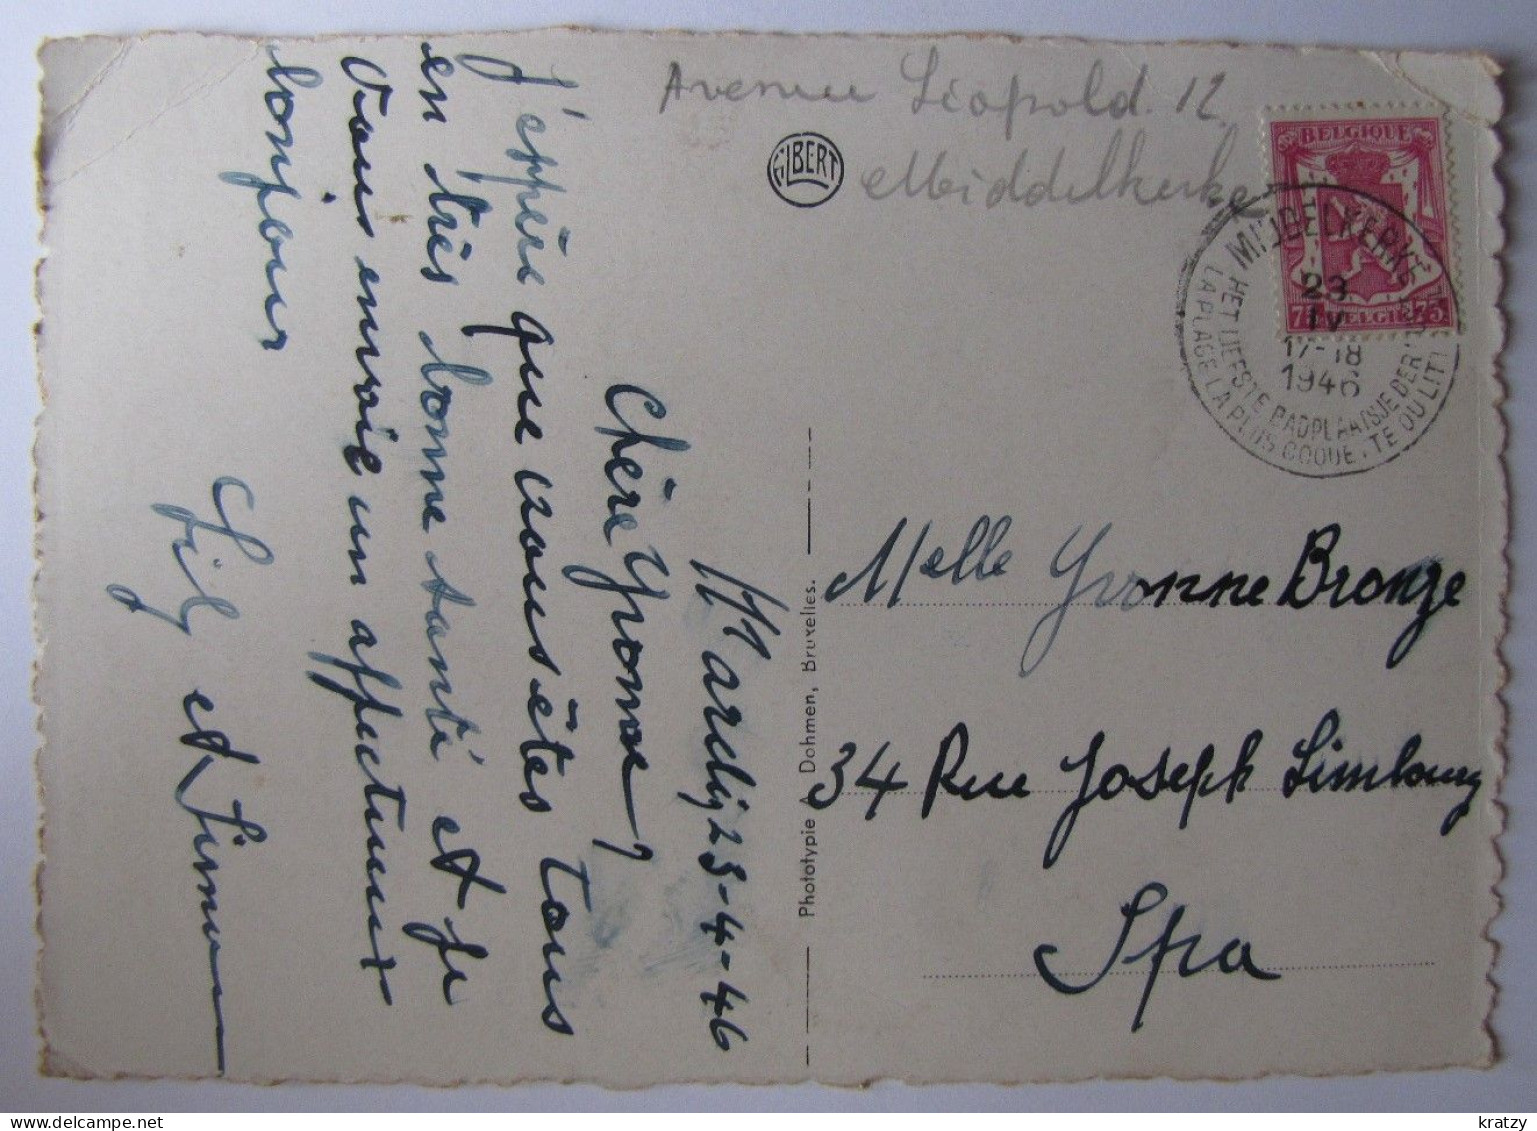 Avenue Léopold. 12
Middelkerke
ALBERT
BELGIQUE
75 BELGIE 75
MIDDELKERKE
23
IV
17-18
1946
HET LIEFSTE BADPLAATSJE DER
LA PLAGE LA PLUS COQUETTE DU LITT
Melle Yvonne Bronze
34 Rue Joseph Limbourg
Spa
Phototypie A. Dohmen, Bruxelles.
23-4-46
Chère Yvonne,
J'éspère que vous êtes tous
en très bonne santé et je
vous envoie un affectueux
bonjour
et Simone
kratzy
DELCAMPE.NET